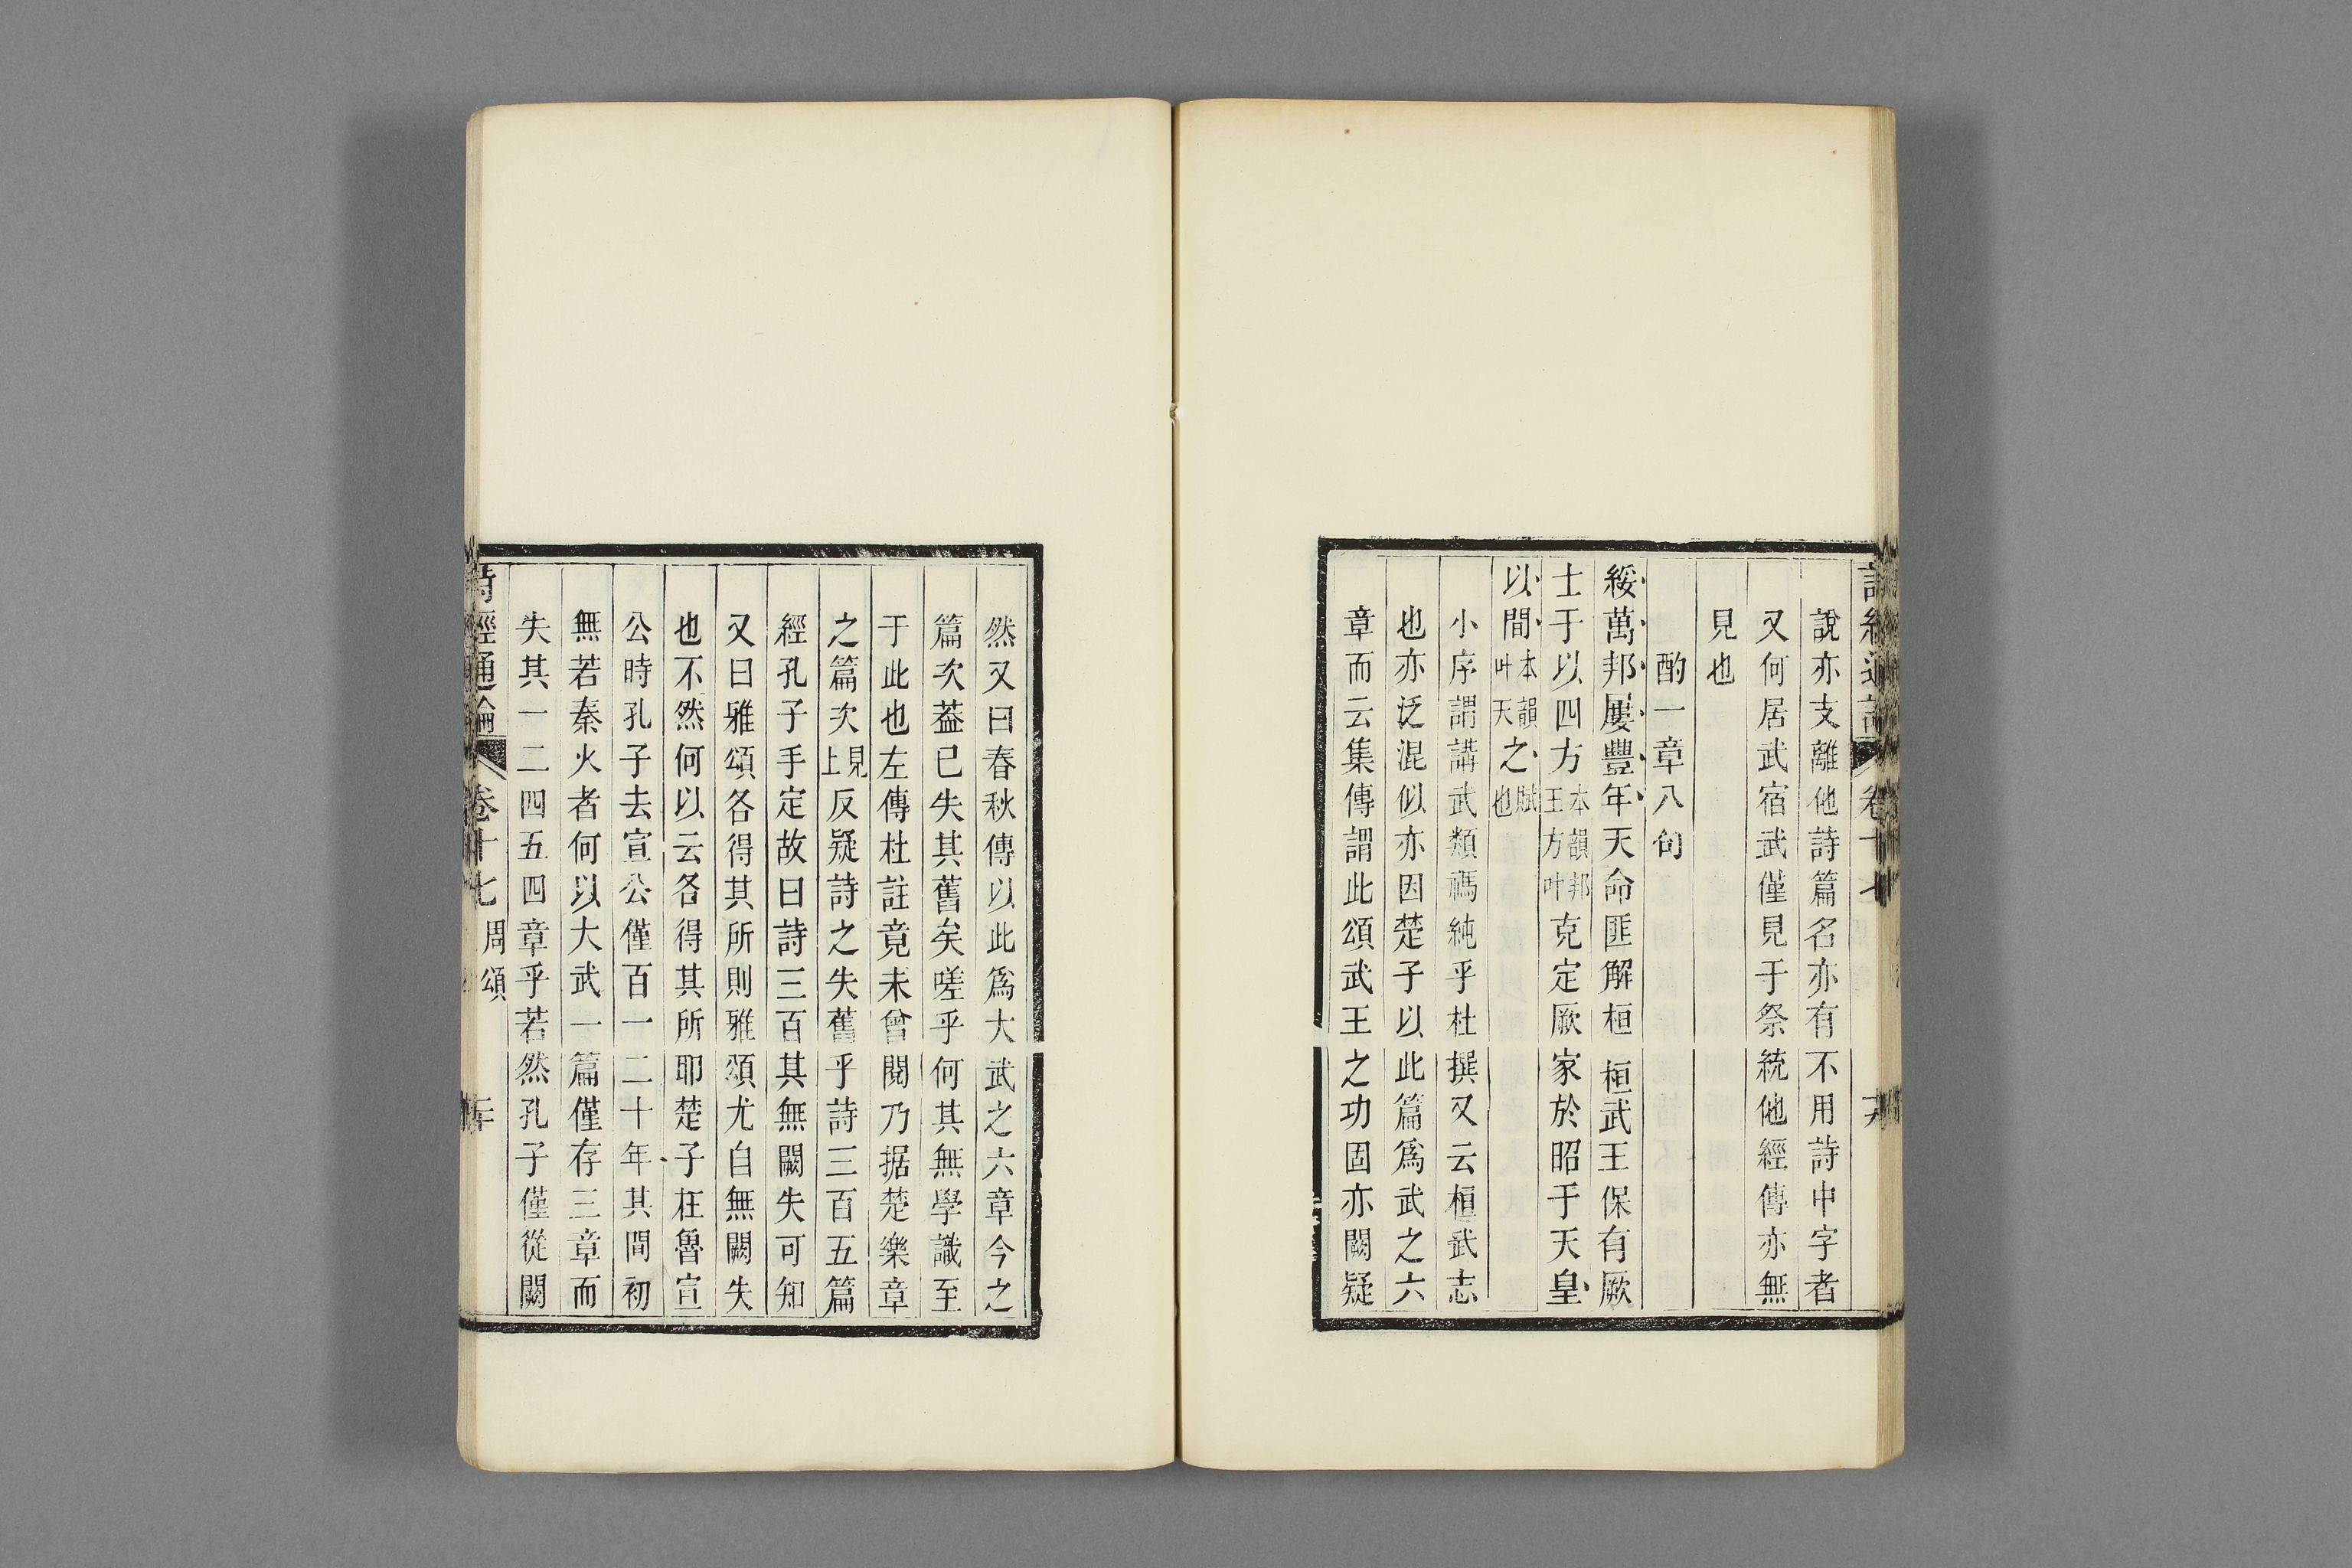 說亦支離他詩篇名亦有不用詩中字者
又何居武宿武僅見于祭統他經傳亦無
見也
酌一章八句
綏萬邦屢豐年天命匪解桓桓武王保有厥
士于以四方本韻邦王方叶克定厥家於昭于天皇
以間本韻叶天之賦也
小序謂講武類禡純乎杜撰又云桓武志
也亦泛混似亦因楚子以此篇爲武之六
章而云集傳謂此頌武王之功固亦闕疑
然又曰春秋傳以此爲大武之六章今之
篇次葢已失其舊矣嗟乎何其無學識至
于此也左傳杜註竟未曾閱乃据楚樂章
之篇次見上反疑詩之失舊乎詩三百五篇
經孔子手定故曰詩三百其無闕失可知
又曰雅頌各得其所則雅頌尤自無闕失
也不然何以云各得其所耶楚子在魯宣
公時孔子去宣公僅百一二十年其間初
無若秦火者何以大武一篇僅存三章而
失其一二四五四章乎若然孔子僅從闕
詩經通論 卷十七 周頌